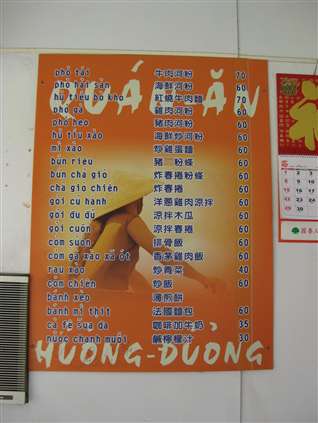 QUÁN ĂN
phở tái 牛肉河粉 70
phở hải sản 海鮮河粉 60
hủ tiếu bò kho 紅燒牛肉麵 70
phở gà 雞肉河粉 60
phở heo 豬肉河粉 60
hủ tíu xào 海鮮炒河粉 60
mì xào 炒雞蛋麵 60
bún riêu 粉條 60
bún chả giò 炸春捲粉條 60
chả giò chiên 炸春捲 60
gỏi củ hành 洋蔥雞肉涼拌 60
gỏi đu đủ 涼拌木瓜 60
gỏi cuốn 涼拌春捲 60
cơm sườn 排骨飯 60
cơm gà xào xả ớt 香茅雞肉飯 60
rau xào 炒青菜 40
cơm chiên 炒飯 60
bánh xèo 薄煎餅
bánh mì thịt 法國麵包 60
cà fê sữa đá 咖啡加牛奶 35
nước chanh muối 鹹檸檬汁 30
HƯƠNG-DƯƠNG